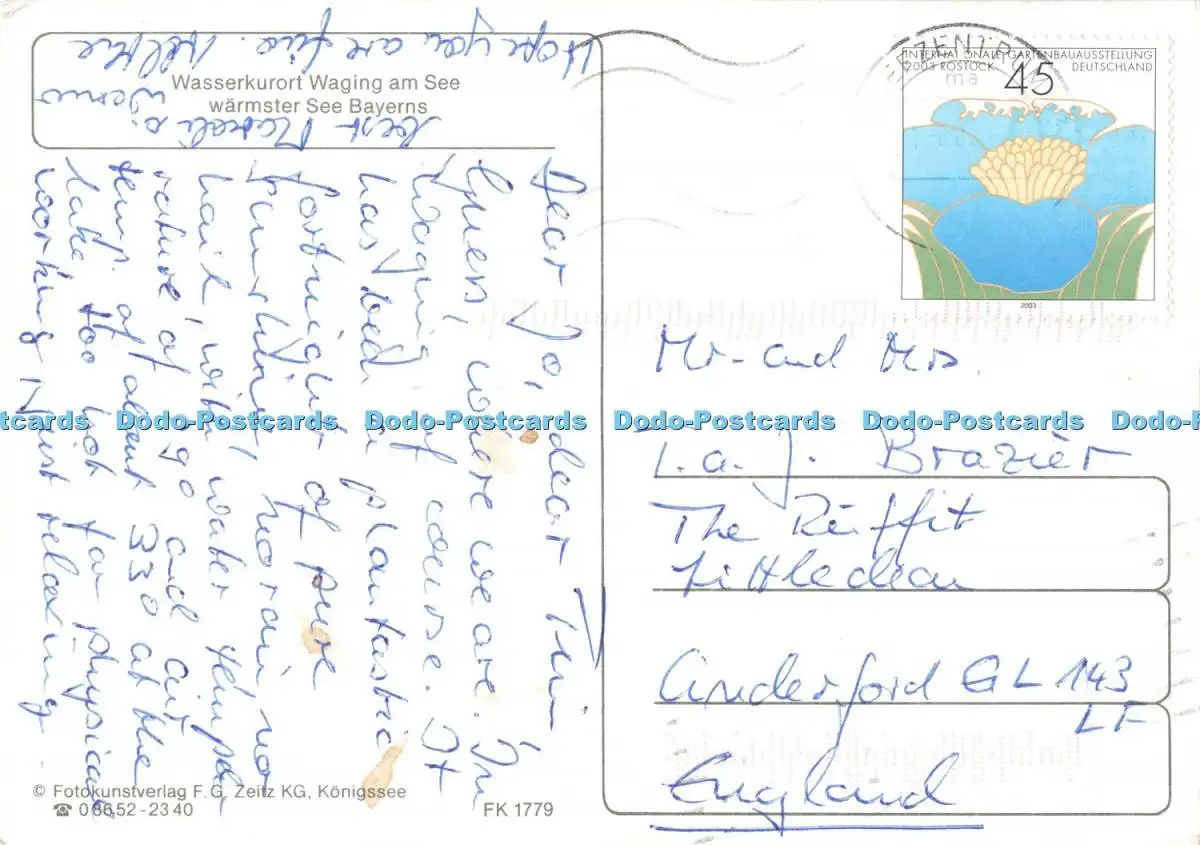 Wasserkurort Waging am See
wärmster See Bayerns
Dear Jo, dear Tim
Guess where we are. In
Waging of course. It
has been a phantastic
fortnight of pure
sunshine, no rain, no
hail, with water tempe-
rature of 29° and air
temp. of about 33° at the
lake, too hot for physical
working. Just relaxing.
Hope you are fine.
Best
INTERNATIONALE GARTENBAUAUSSTELLUNG
2003 ROSTOCK 45 DEUTSCHLAND
2003
Mr. and Mrs.
T. a. J. Brazier
The Ruffit
Littledean
Cinderford GL 143
LF
England
© Fotokunstverlag F. G. Zeitz KG, Königssee
☎ 0 86 52 - 23 40
FK 1779
Dodo-Postcards Dodo-Postcards Dodo-Postcards Dodo-Postcards Dodo-Postcards